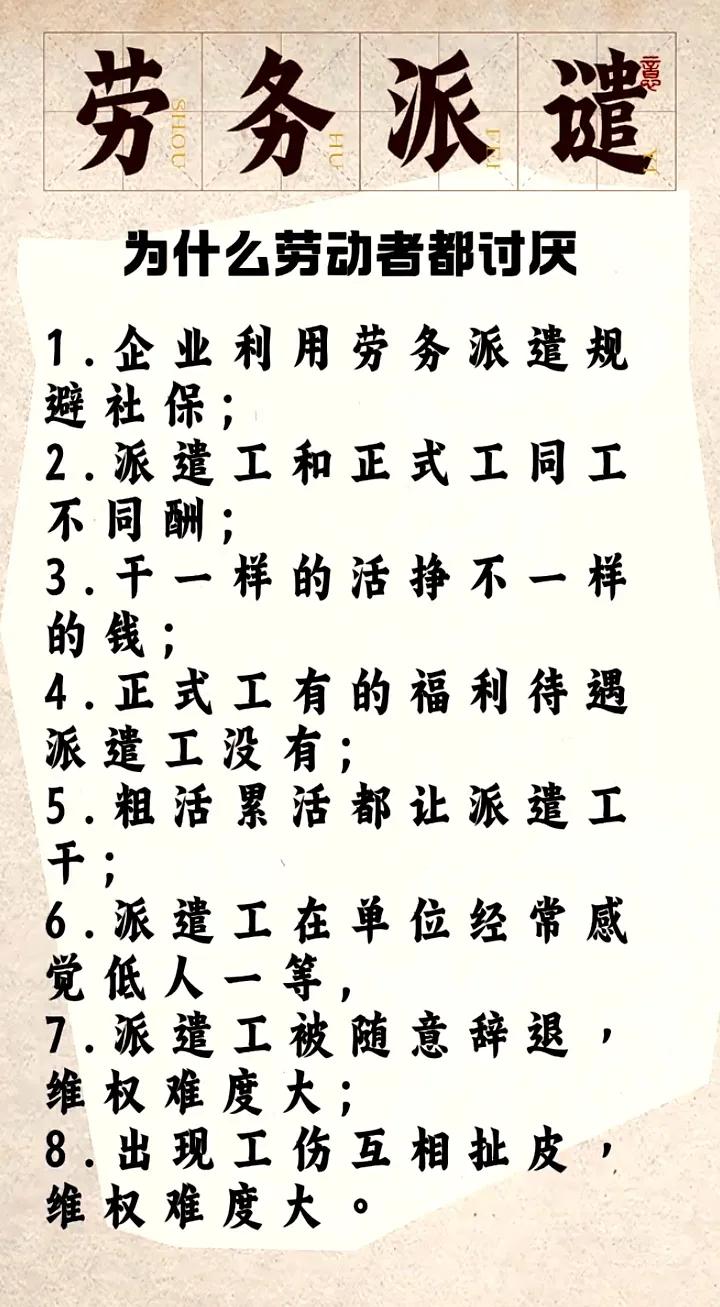 劳务派遣
SHOU
HU
意
为什么劳动者都讨厌
1.企业利用劳务派遣规
避社保;
2.派遣工和正式工同工
不同酬;
3.干一样的活挣不一样
的钱;
4.正式工有的福利待遇
派遣工没有;
5.粗活累活都让派遣工
干;
6.派遣工在单位经常感
觉低人一等,
7.派遣工被随意辞退,
维权难度大;
8.出现工伤互相扯皮,
维权难度大。